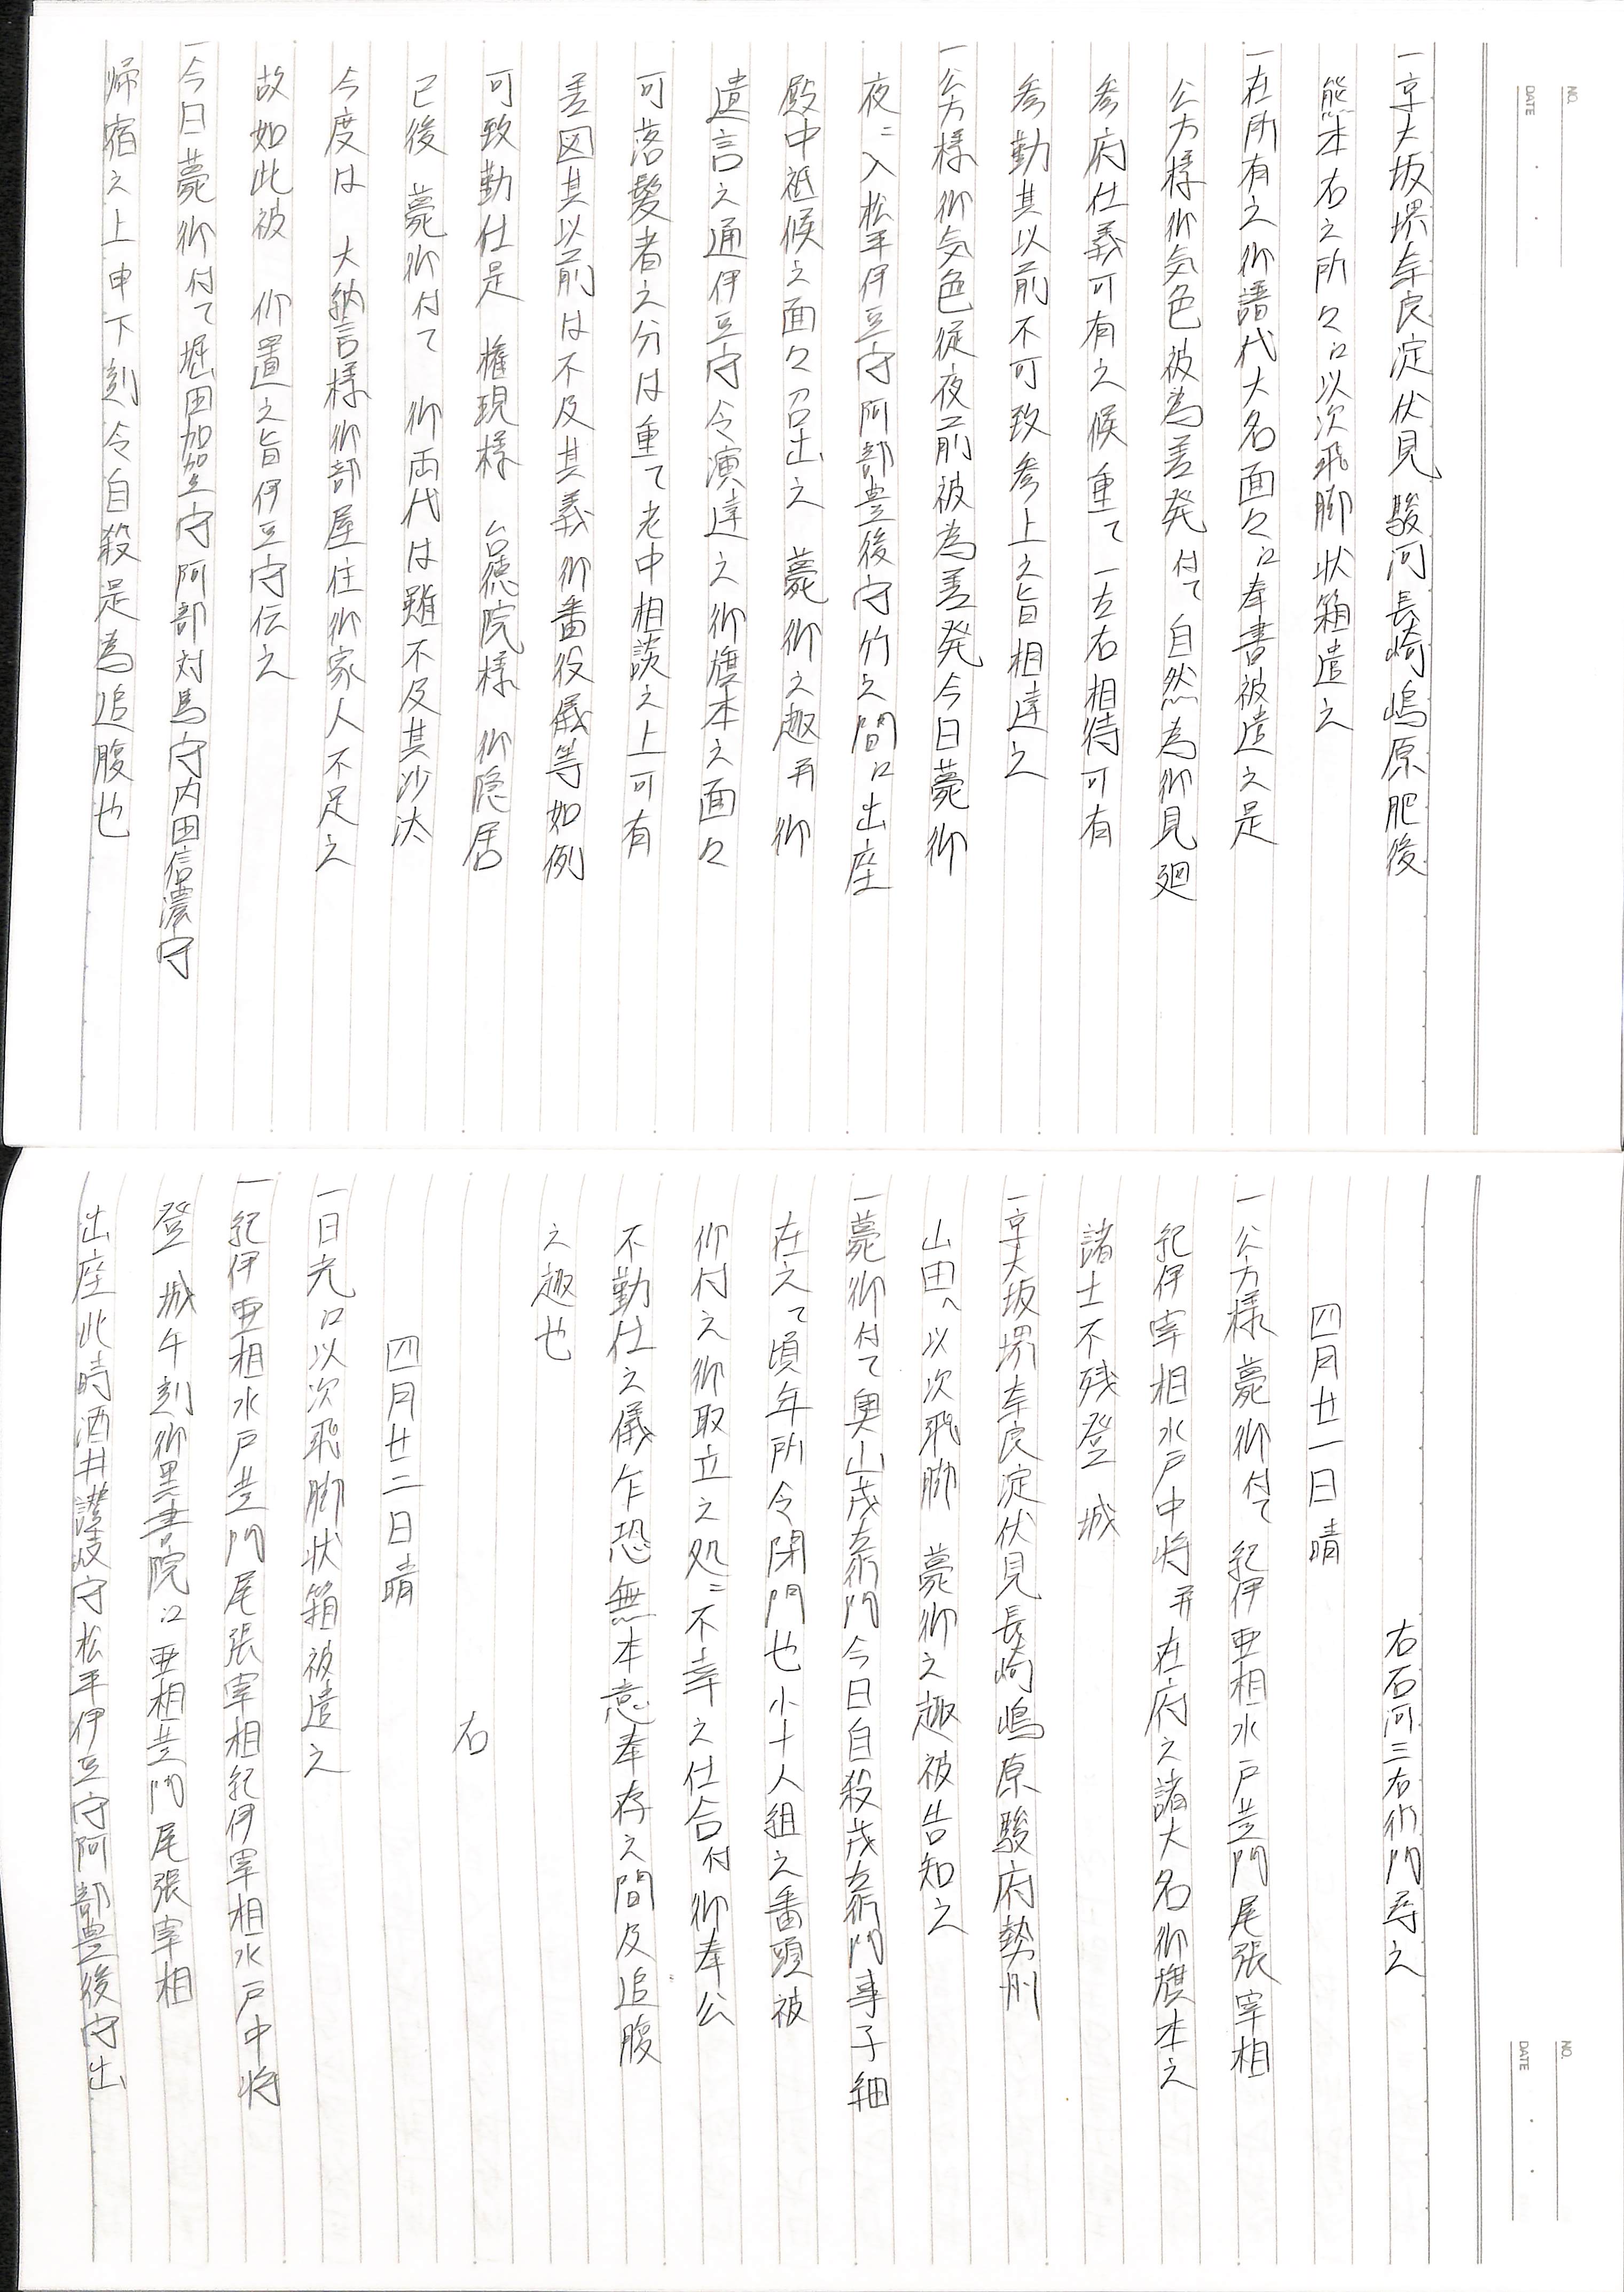 NO.
DATE
一京大坂堺奈良淀伏見駿河長崎嶋原肥後
熊本右之所々江以次飛脚状箱遣之
一在所有之御譜代大名面々江奉書被遣之是
公方様御気色被為差発付て自然為御見廻
参府仕義可有之候重て一左右相待可有
参勤其以前不可致参上之旨相達之
一公方様御気色従夜前被為差発今日薨御
夜ニ入松平伊豆守阿部豊後守竹之間江出座
殿中祗候之面々召出之 薨御之趣并御
遺言之通伊豆守令演達之御旗本之面々
可落髪者之分は重て老中相談之上可有
差図其以前は不及其義御番役儀等如例
可致勤仕是 権現様 台徳院様 御隠居
已後 薨御付て 御両代は雖不及其沙汰
今度は 大納言様御部屋住御家人不足之
故如此被 仰置之旨伊豆守伝之
一今日薨御付て堀田加賀守阿部対馬守内田信濃守
帰宿之上申下刻令自殺是為追腹也
NO.
DATE
右石河三右衛門尋之
四月廿一日晴
一公方様薨御付て紀伊亜相水戸黄門尾張宰相
紀伊宰相水戸中将并在府之諸大名御旗本之
諸士不残登 城
一京大坂堺奈良淀伏見長崎嶋原駿府勢州
山田へ以次飛脚 薨御之趣被告知之
一薨御付て奥山茂左衛門今日自殺茂左衛門事子細
在之て頃年所令閉門也小十人組之番頭被
仰付之御取立之処ニ不幸之仕合付御奉公
不勤仕之儀乍恐無本意奉存之間及追腹
之趣也
右
四月廿二日晴
一日光江以次飛脚状箱被遣之
一紀伊亜相水戸黄門尾張宰相紀伊宰相水戸中将
登 城午刻御黒書院江亜相黄門尾張宰相
出座此時酒井讃岐守松平伊豆守阿部豊後守出